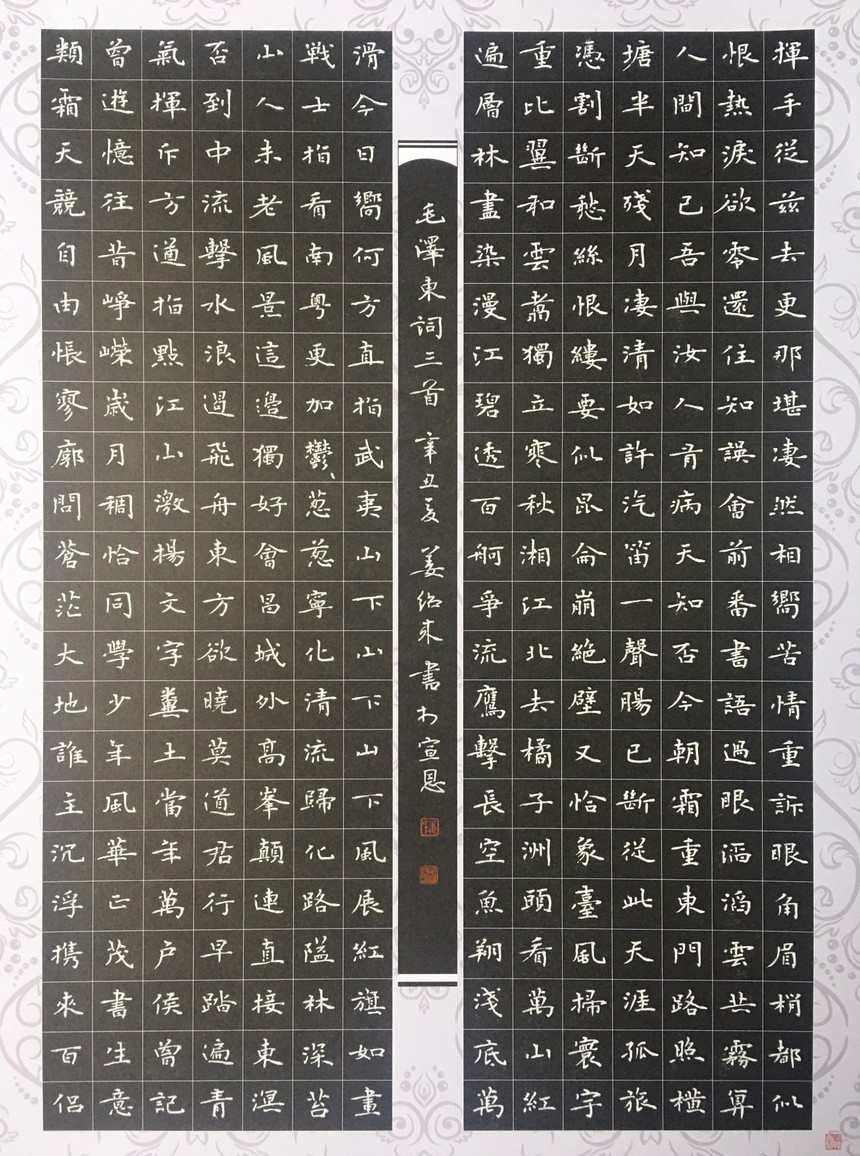 揮手從茲去更那堪凄然相嚮苦情重訴眼角眉梢都似
恨熱淚欲零還住知誤會前番書語過眼滔滔雲共霧算
人間知己吾與汝人有病天知否今朝霜重東門路照橫
塘半天殘月凄清如許汽笛一聲腸已斷從此天涯孤旅
憑割斷愁絲恨縷要似昆侖崩絕壁又恰象臺風掃寰宇
重比翼和雲翥獨立寒秋湘江北去橘子洲頭看萬山紅
遍層林盡染漫江碧透百舸爭流鷹擊長空魚翔淺底萬
類霜天競自由悵寥廓問蒼茫大地誰主沉浮携來百侶
曾遊憶往昔崢嶸歲月稠恰同學少年風華正茂書生意
氣揮斥方遒指點江山激揚文字糞土當年萬户侯曾記
否到中流擊水浪遏飛舟東方欲曉莫道君行早踏遍青
山人未老風景這邊獨好會昌城外高峯顛連直接東溟
戦士指看南粵更加鬱葱葱寧化清流歸化路隘林深苔
滑今日嚮何方直指武夷山下山下山下風展紅旗如畫
毛澤東詞三首 辛丑夏 姜紹來書於宣恩